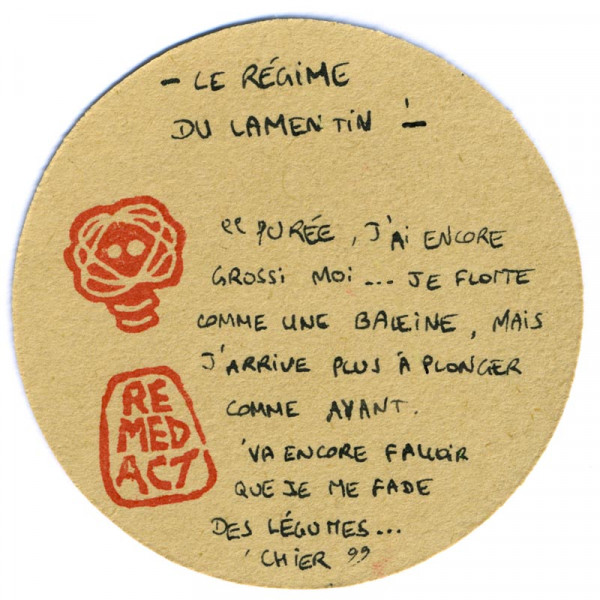 - LE RÉGIME
DU LAMENTIN -
"PURÉE, J'AI ENCORE
GROSSI MOI... JE FLOTTE
COMME UNE BALEINE, MAIS
J'ARRIVE PLUS À PLONGER
COMME AVANT.
'VA ENCORE FALLOIR
QUE JE ME FADE
DES LÉGUMES...
'CHIER"
RE
MED
ACT